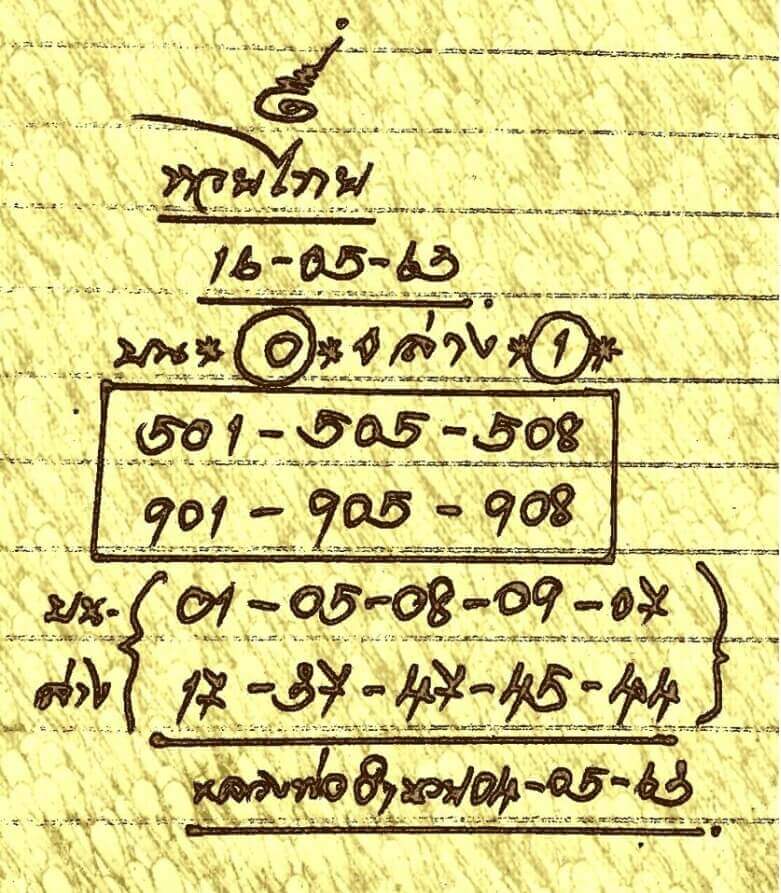 หวยไทย
16-05-63
บน*0* ล่าง*1*
501-505-508
901-905-908
บน- 01-05-08-09-07
ล่าง 17-37-47-45-44
หลวงพ่ออำนวย04-05-63